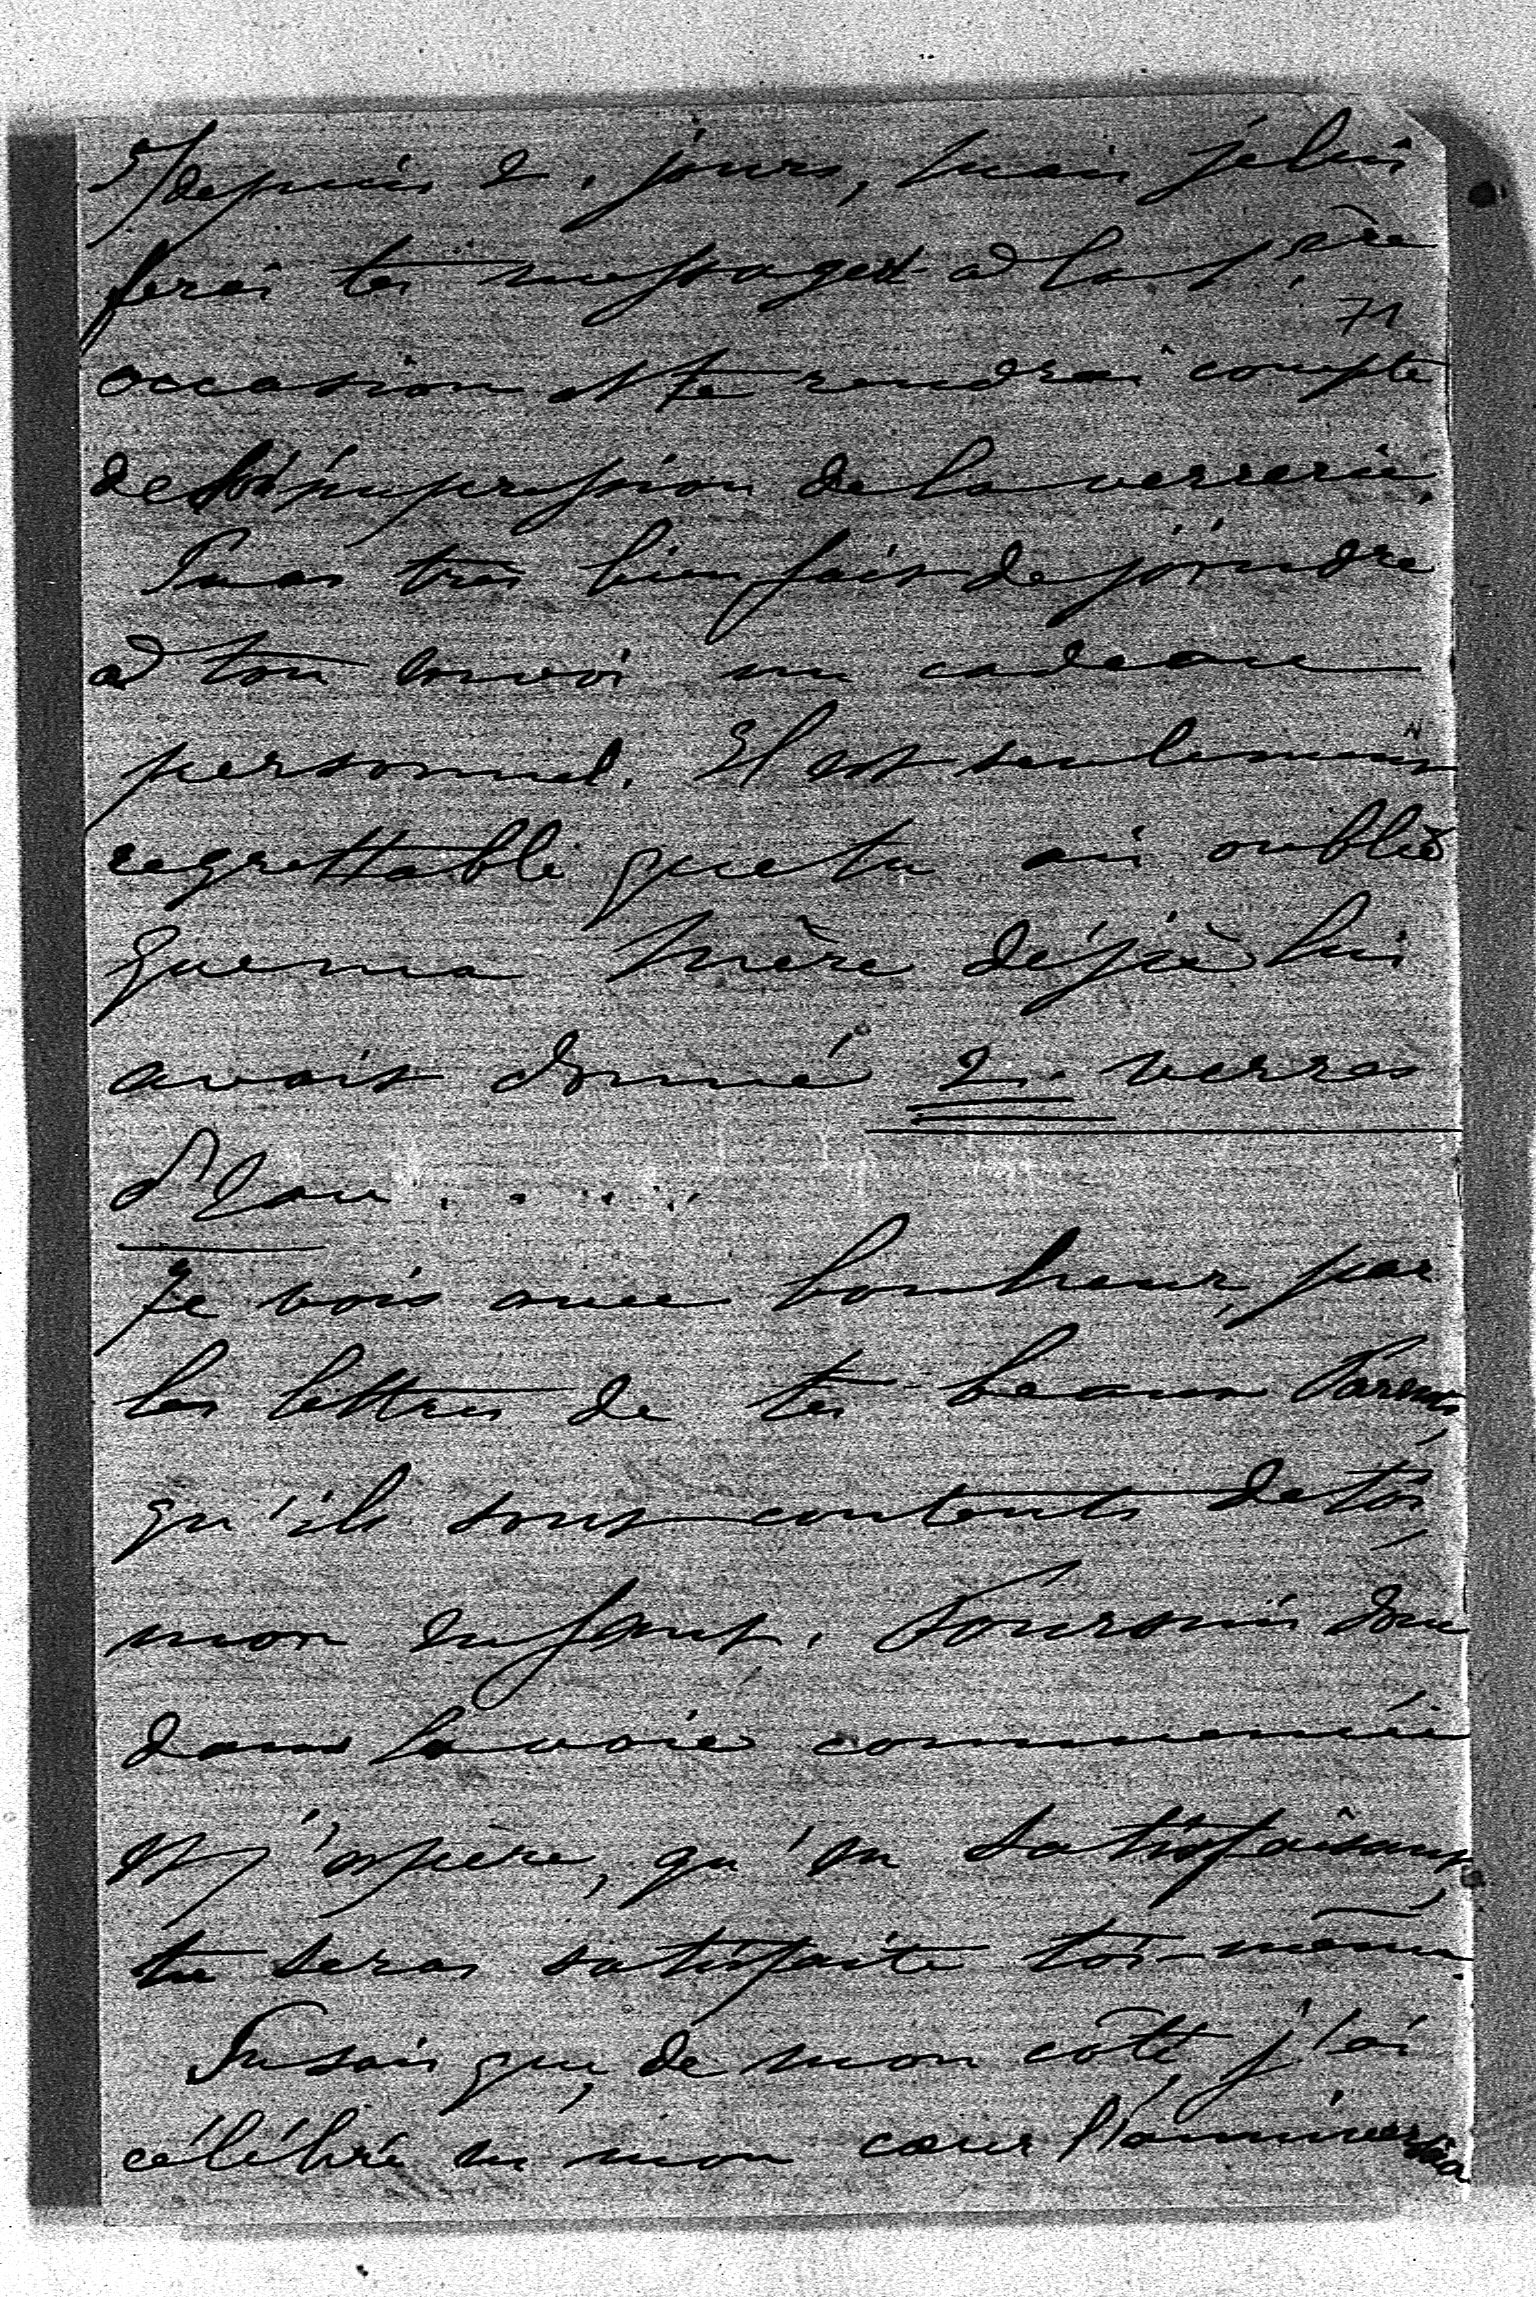 5/ depuis 2. jours, mais je lui
ferai tes messages à la 1.ère
71
occasion et te rendrai compte
de l'impression de la verrerie.
Tu as très bien fait de joindre
à ton envoi un cadeau
personnel. Il est seulement
regrettable que tu ais oublié
que ma Mère déjà lui
avait donné 2. verres
d'eau . . . . .
Je vois avec bonheur, par
les lettres de tes beaux Parents,
qu'ils sont contents de toi,
mon enfant. Poursuis donc
dans la voie commencée
et j'espère, qu'en satisfaisant,
tu seras satisfaite toi-même.
Tu sais que, de mon côté j'ai
célébré en mon cœur l'anniver